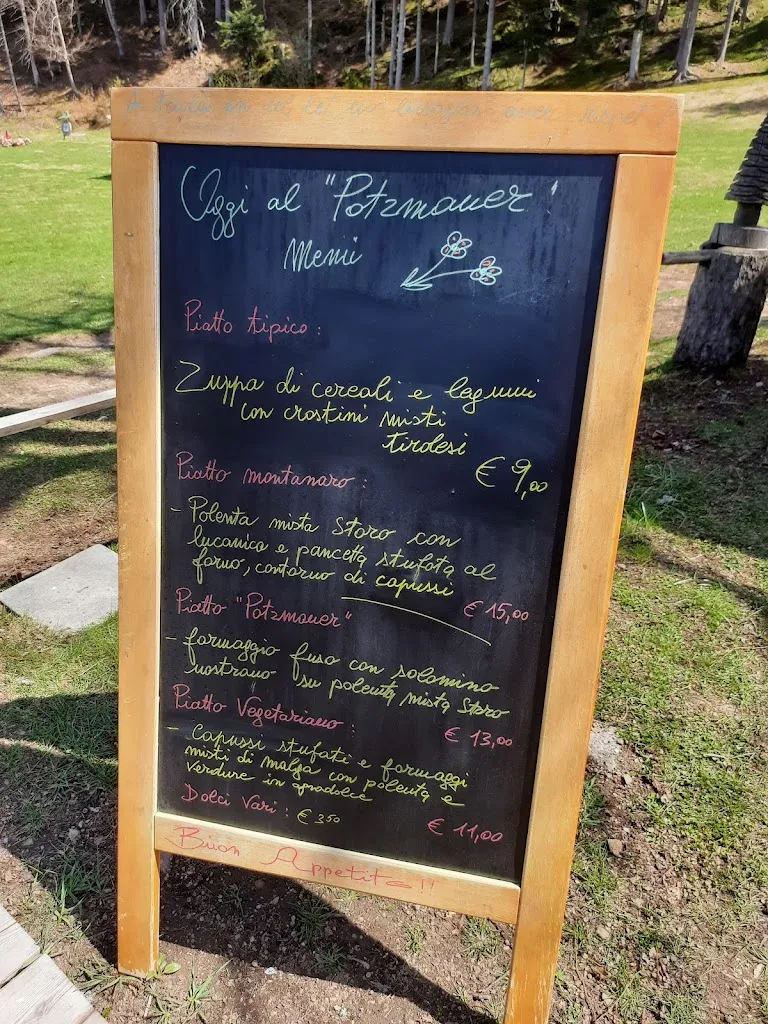 Oggi al "Potzmauer"
Menù
Piatto tipico:
Zuppa di cereali e legumi
con crostini misti
tirolesi
€ 9,00
Piatto montanaro:
- Polenta mista Storo con
lucanica e pancetta stufata al
forno, contorno di capussi
€ 15,00
Piatto "Potzmauer"
- formaggio fuso con salamino
nostrano su polenta mista Storo
€ 13,00
Piatto Vegetariano:
- Capussi stufati e formaggi
misti di malga con polenta e
verdure in agrodolce
€ 11,00
Dolci Vari: € 3,50
Buon Appetito!!